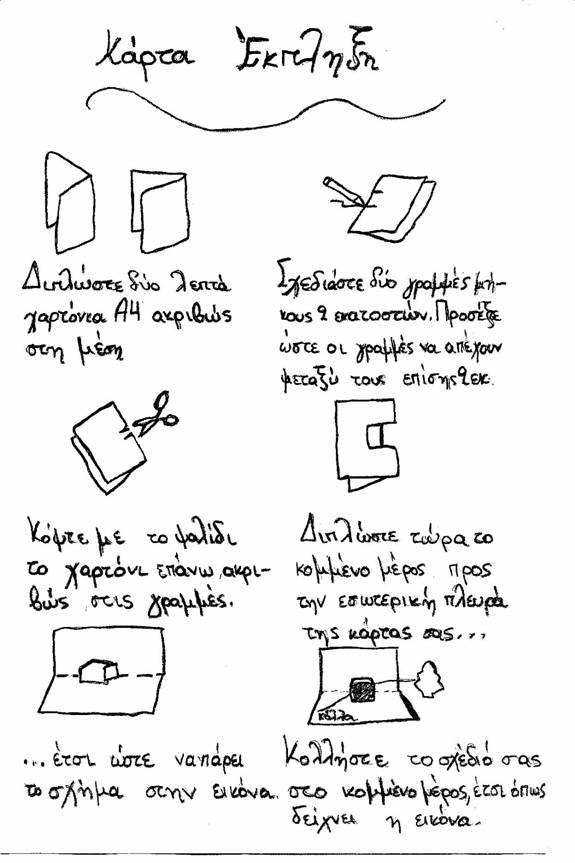 Κάρτα Έκπληξη
Διπλώστε δύο λεπτά
χαρτόνια Α4 ακριβώς
στη μέση
Σχεδιάστε δύο γραμμές μή-
κους 2 εκατοστών. Προσέξτε
ώστε οι γραμμές να απέχουν
μεταξύ τους επίσης 2 εκ.
Κόψτε με το ψαλίδι
το χαρτόνι επάνω, ακρι-
βώς στις γραμμές.
Διπλώστε τώρα το
κομμένο μέρος προς
την εσωτερική πλευρά
της κάρτας σας...
...έτσι ώστε να πάρει
το σχήμα στην εικόνα.
κόλλα
Κολλήστε το σχέδιό σας
στο κομμένο μέρος, έτσι όπως
δείχνει η εικόνα.